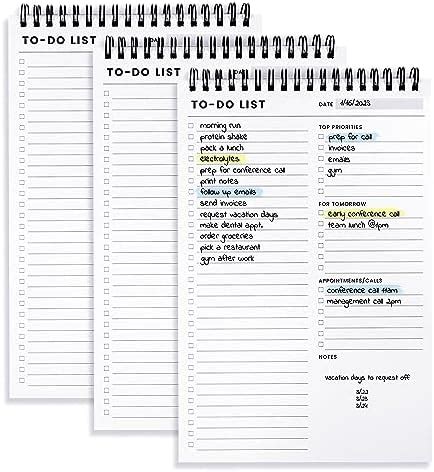 TO-DO LIST
TO-DO LIST
TO-DO LIST
DATE 1/15/2023
morning run
protein shake
pack a lunch
electrolytes
prep for conference call
print notes
follow up emails
send invoices
request vacation days
make dental appt.
order groceries
pick a restaurant
gym after work
TOP PRIORITIES
prep for call
invoices
emails
gym
FOR TOMORROW
early conference call
team lunch @1pm
APPOINTMENTS/CALLS
conference call 11am
management call 2pm
NOTES
vacation days to request off
3/23
3/24